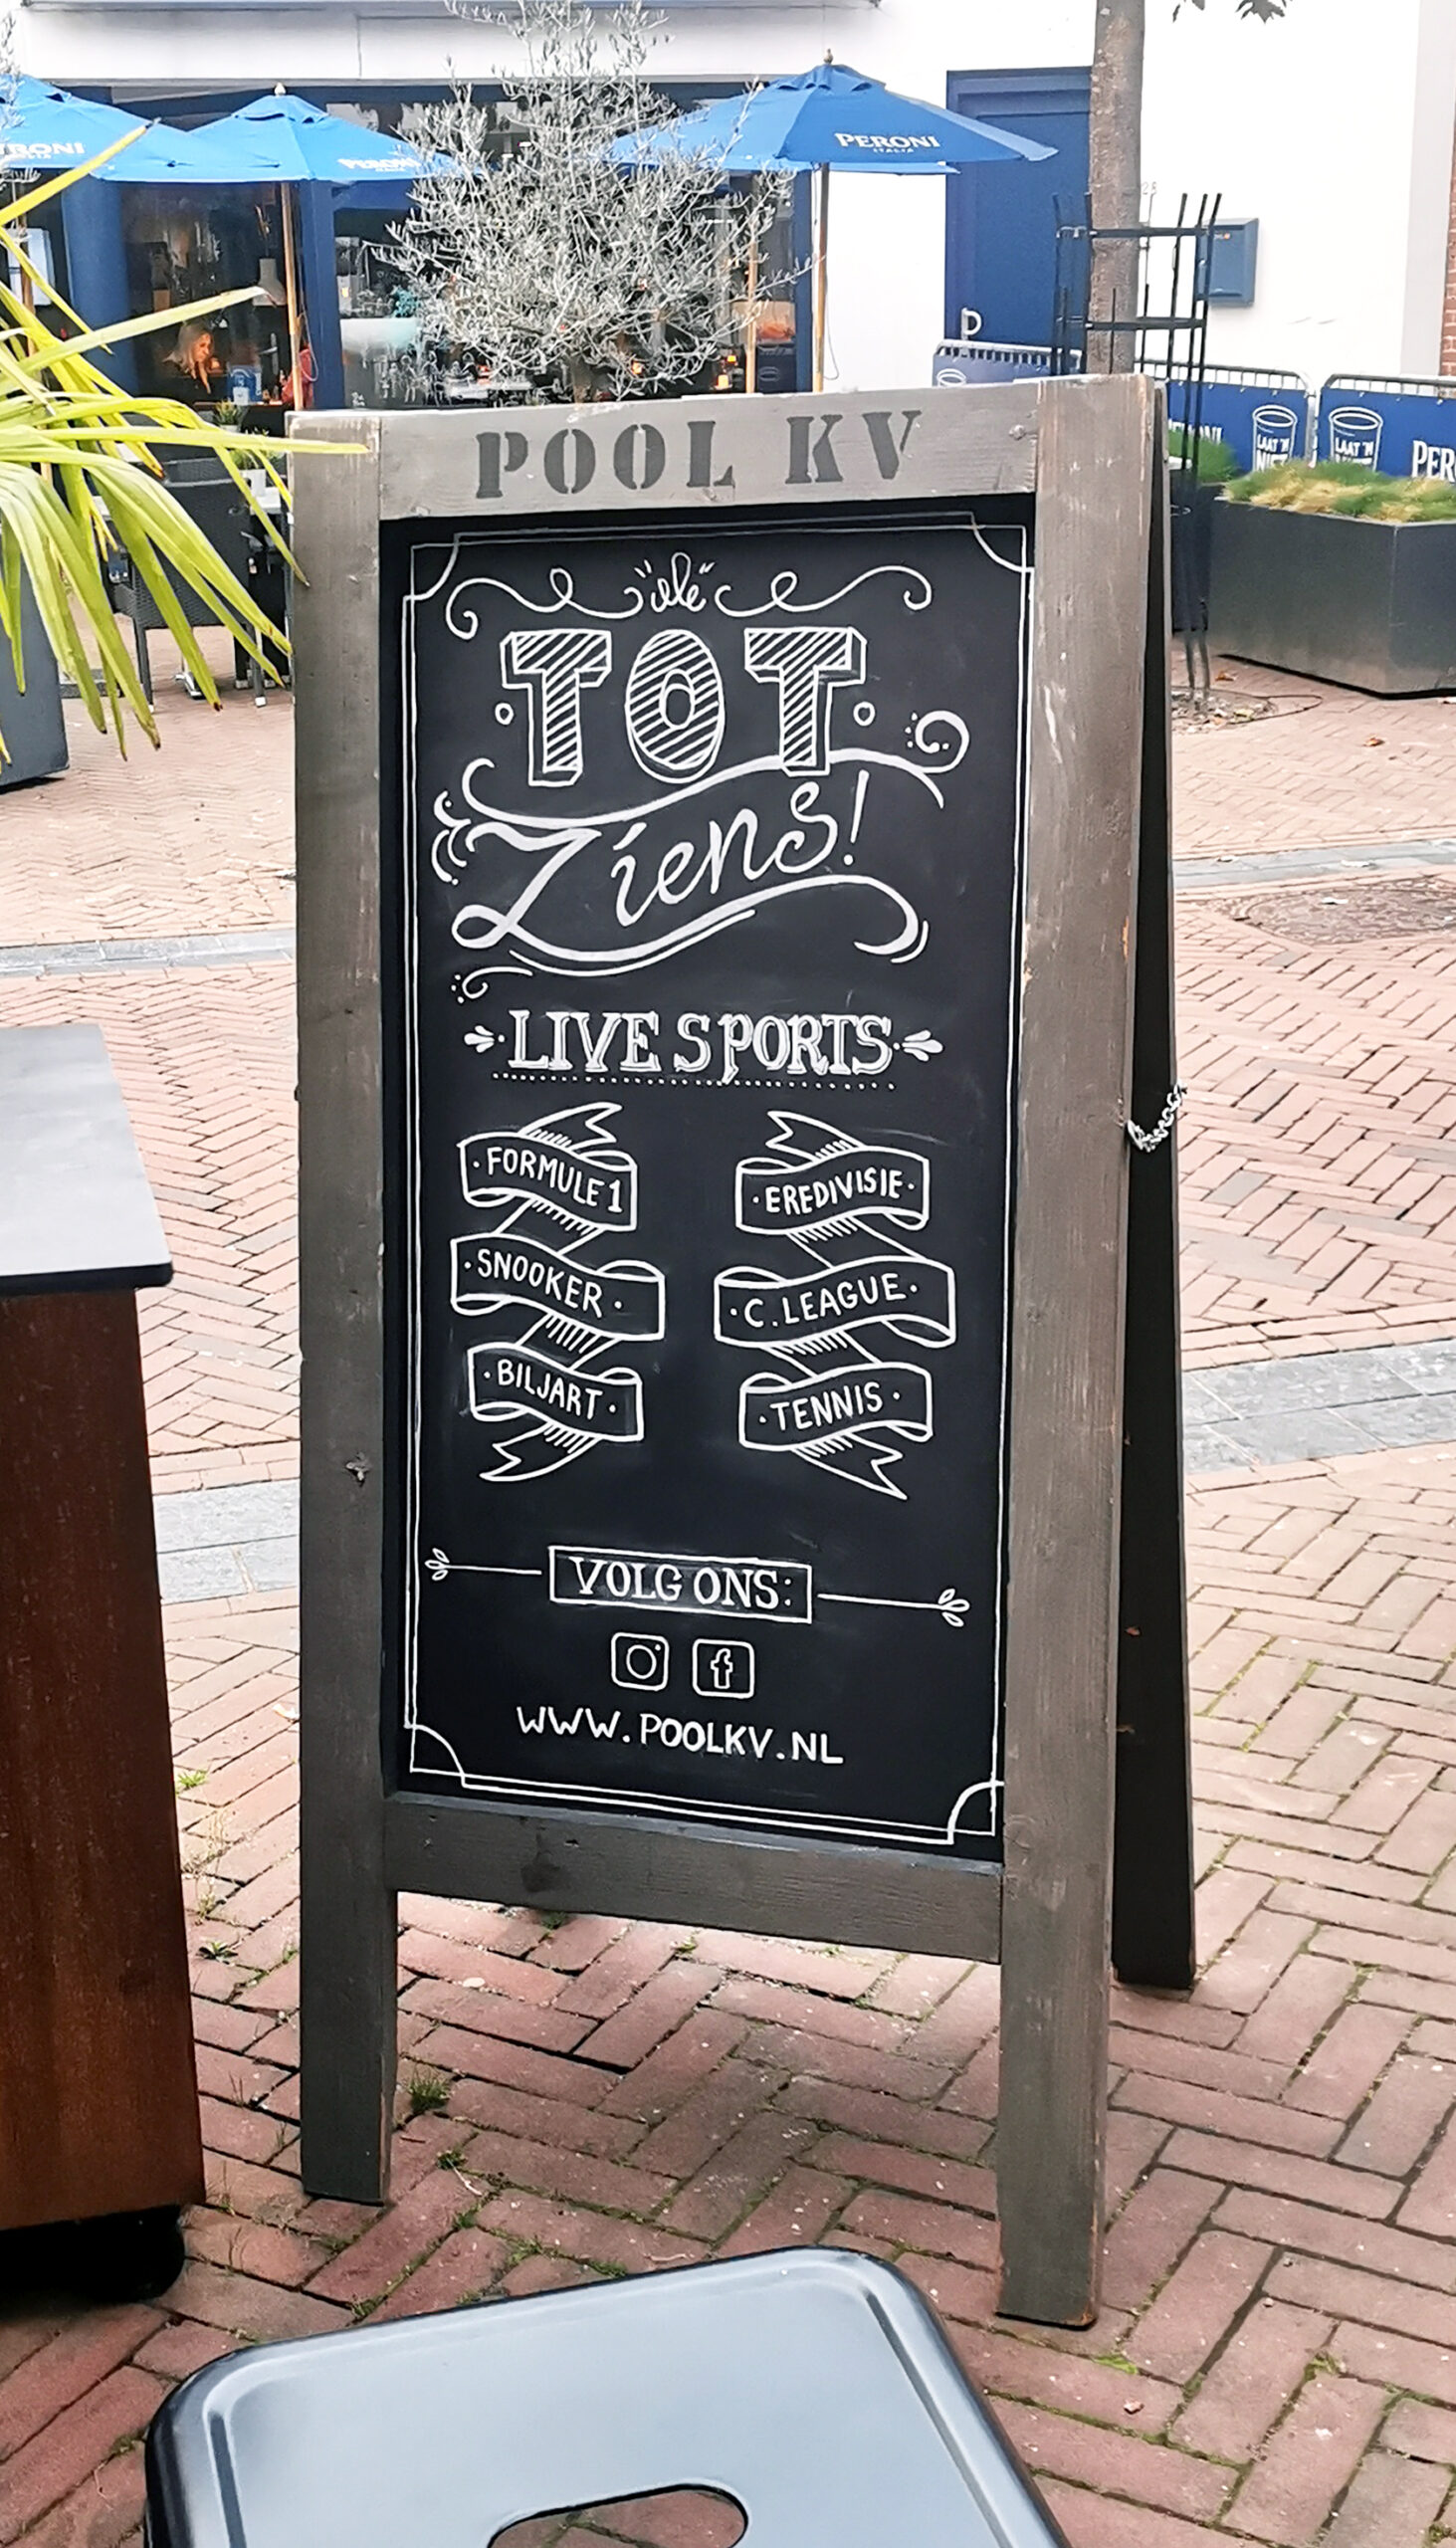 PERONI
PERONI
ITALIA
PERONI
ITALIA
POOL KV
TOT
Ziens!
LIVE SPORTS
·FORMULE 1
·EREDIVISIE·
·SNOOKER·
·C.LEAGUE·
·BILJART·
·TENNIS·
VOLG ONS:
WWW.POOLKV.NL
LAAT 'N
LAAT 'N